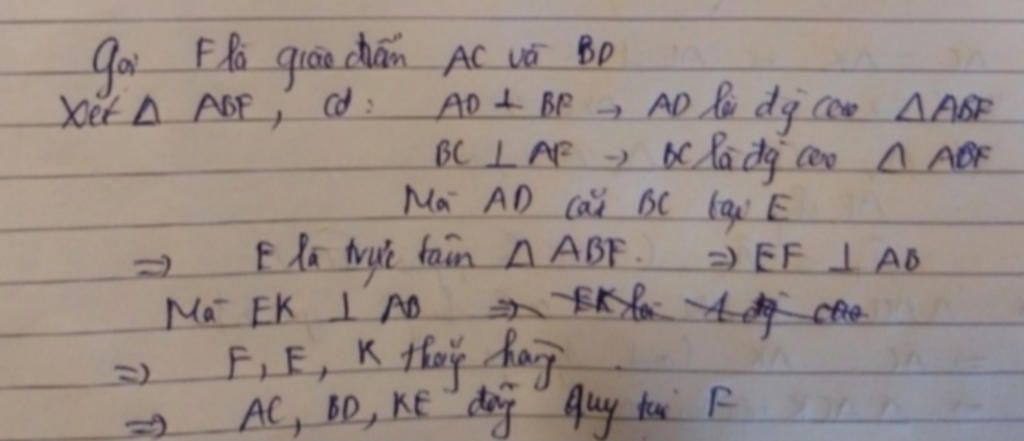 Gọi F là giao điểm AC và BD
Xét Δ ABF, có: AD ⊥ BF → AD là đg cao Δ ABF
BC ⊥ AF → BC là đg cao Δ ABF
Mà AD cắt BC tại E
⇒ E là trực tâm Δ ABF. ⇒ EF ⊥ AB
Mà EK ⊥ AB ⇒ EK là 1 đg cao
⇒ F, E, K thẳng hàng.
⇒ AC, BD, KE đồng quy tại F